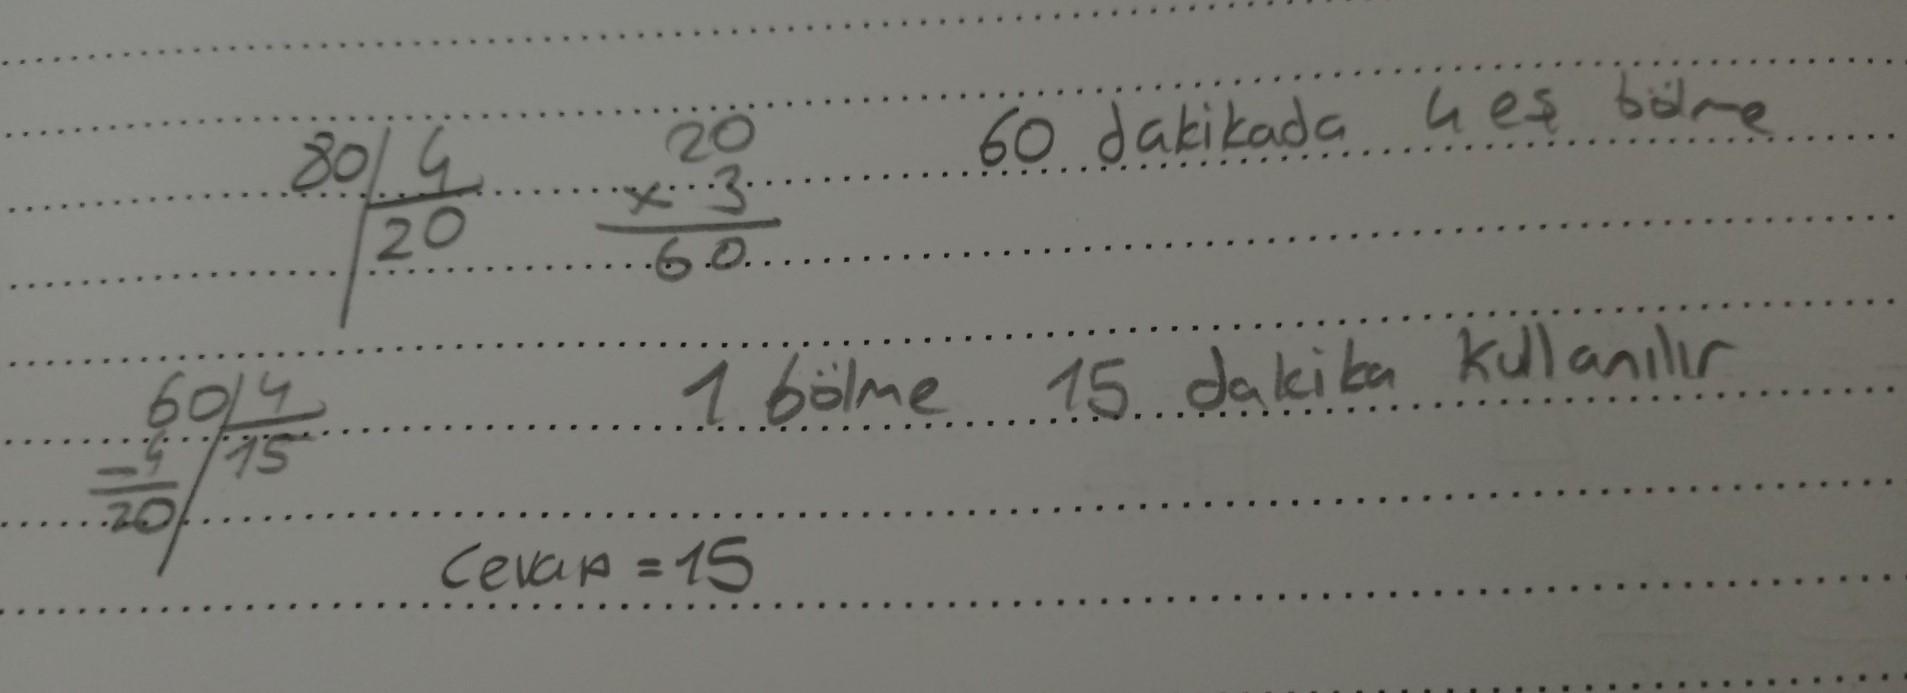 80 4
20
20
x 3
60
60 dakikada 4 eş bölme
60 4
- 4 15
20
1 bölme 15 dakika kullanılır
Cevap = 15